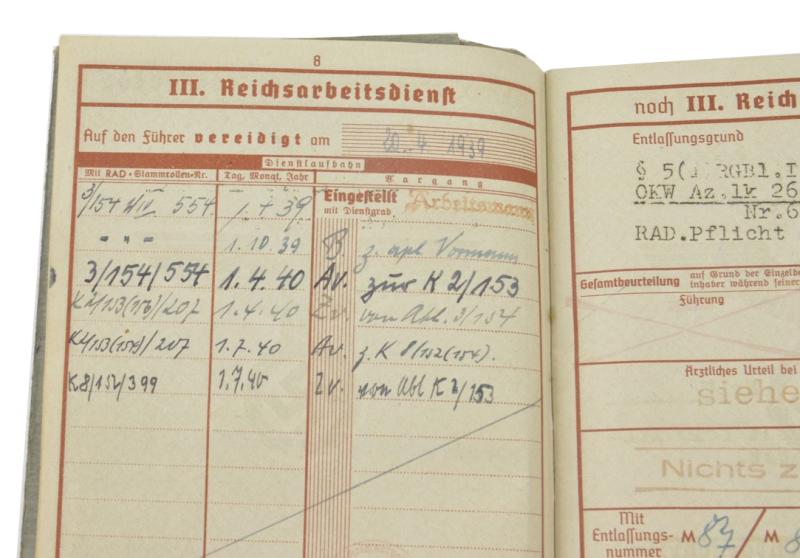 8
III. Reichsarbeitsdienst
Auf den Führer vereidigt am 20. 4 1939
Dienstlaufbahn
Mit RAD-Stammrollen-Nr. Tag, Monat, Jahr Vorgang
3/154 554 1. 4 39 Eingestellt mit Dienstgrad Arbeitsmann
" " 1.10.39 B z. apl Vormann
3/154/554 1.4.40 Av. zur K 2/153
1.4.40 Zv. von Abl. 3/154
207 1.7.40 Av. z. K 8/152(154).
K8/152/399 1.7.40 Zv. von Abl K 2/153
noch III. Reich
Entlassungsgrund
RGBl.I
OKW Az.1k 26
Nr.6
RAD.Pflicht
Gesamtbeurteilung auf Grund der Einzelbe
inhaber während seiner
Führung
Ärztliches Urteil bei
siehe
Nichts z
Mit
Entlassungs-
nummer M 87 / M 8